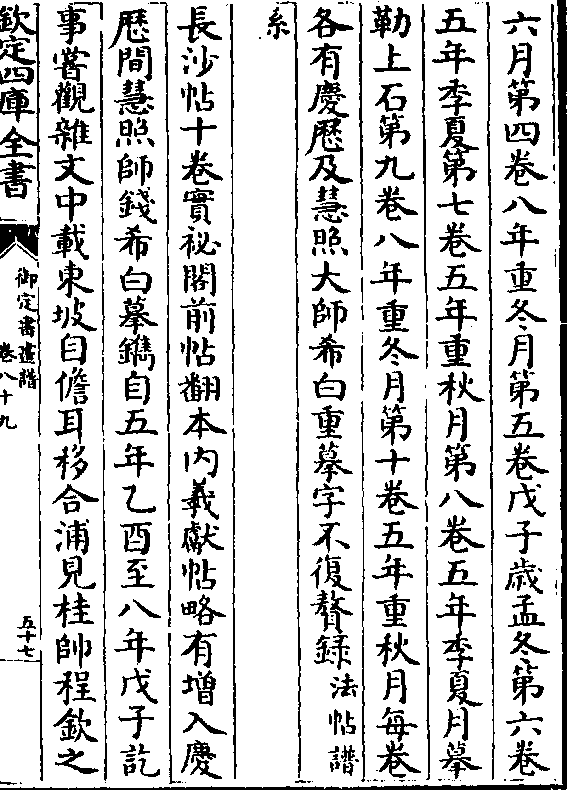 六月第四卷八年重冬月第五卷戊子歳孟冬第六卷
五年季夏第七卷五年重秋月第八卷五年季夏月摹
勒上石第九卷八年重冬月第十卷五年重秋月每卷
各有慶歴及慧照大師希白重摹字不復贅録法帖譜
系
長沙帖十卷實祕閣前帖翻本内羲獻帖略有增入慶
歴間慧照師錢希白摹鐫自五年乙酉至八年戊子訖
事嘗觀雜文中載東坡自儋耳移合浦見桂帥程欽之
欽定四庫全書
御定書畫譜
卷八十九
五十七